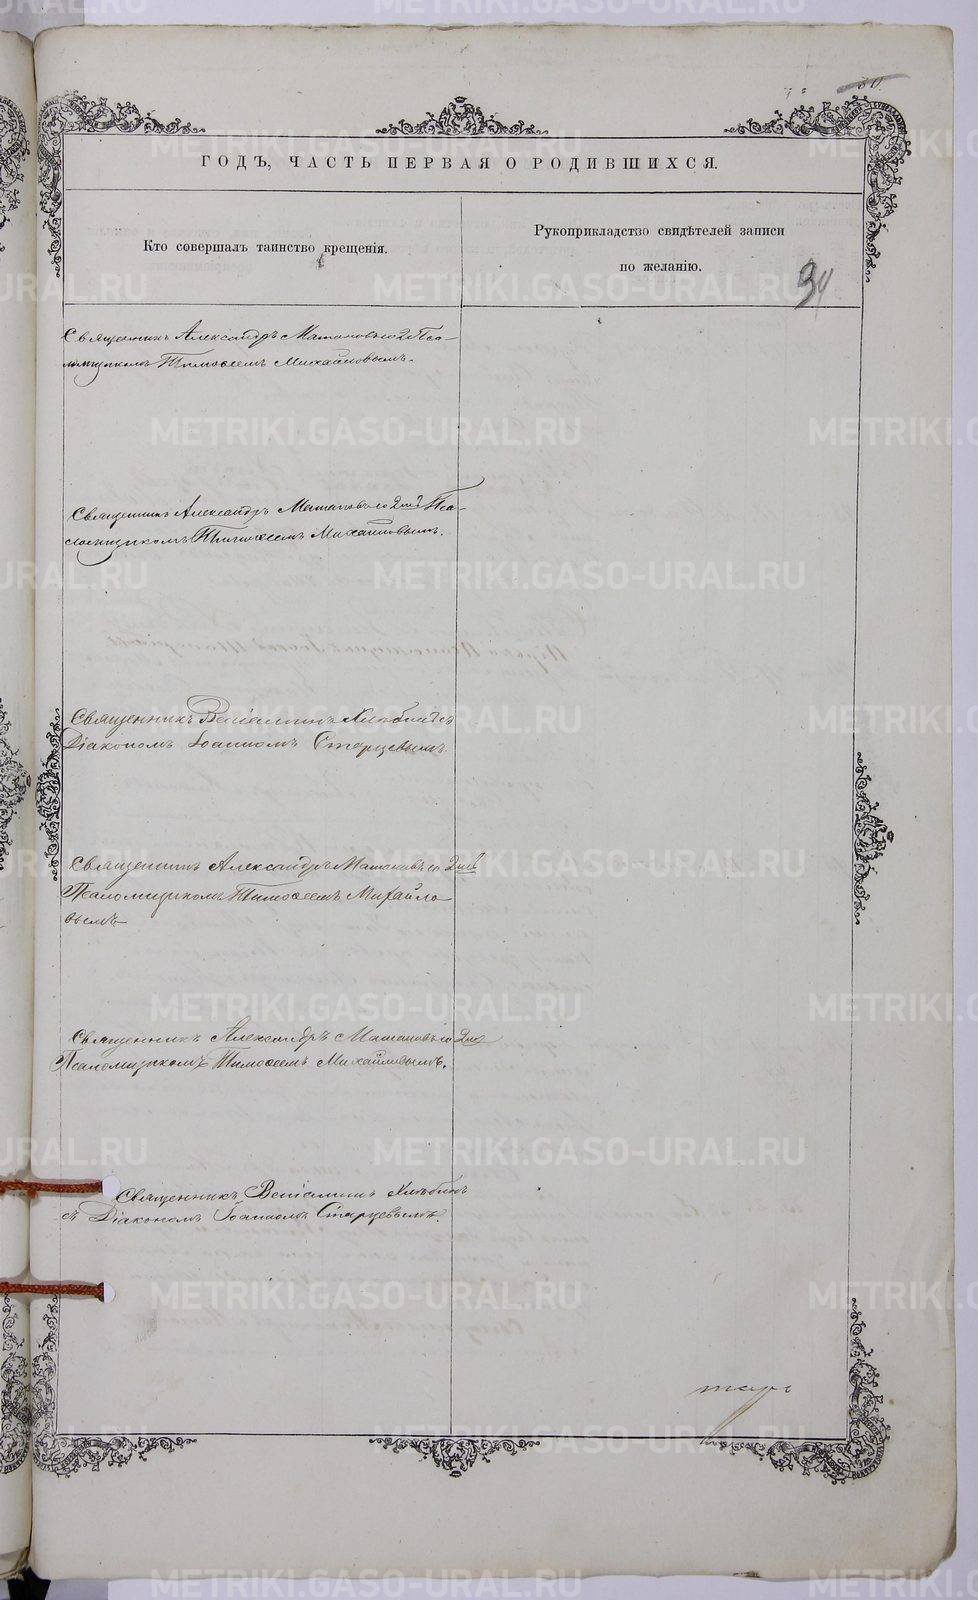 30.
ГОДЪ, ЧАСТЬ ПЕРВАЯ О РОДИВШИХСЯ.
Кто совершалъ таинство крещенія.
Рукоприкладство свидѣтелей записи
по желанію.
34
Священникъ Александръ съ 2 Пса-
ломщикомъ Тимоѳеемъ Михайловымъ.
Священникъ Александръ съ Пса-
ломщикомъ Тимоѳеемъ Михайловымъ.
Священникъ Веніаминъ Хлѣбинъ съ
Діакономъ Іоанномъ Старцевымъ.
Священникъ Александръ съ
Псаломщикомъ Тимоѳеемъ Михайло
вымъ
Священникъ Александръ съ
Псаломщикомъ Тимоѳеемъ Михайловымъ.
Священникъ Веніаминъ Хлѣбинъ
съ Діакономъ Іоанномъ Старцевымъ.
METRIKI.GASO-URAL.RU